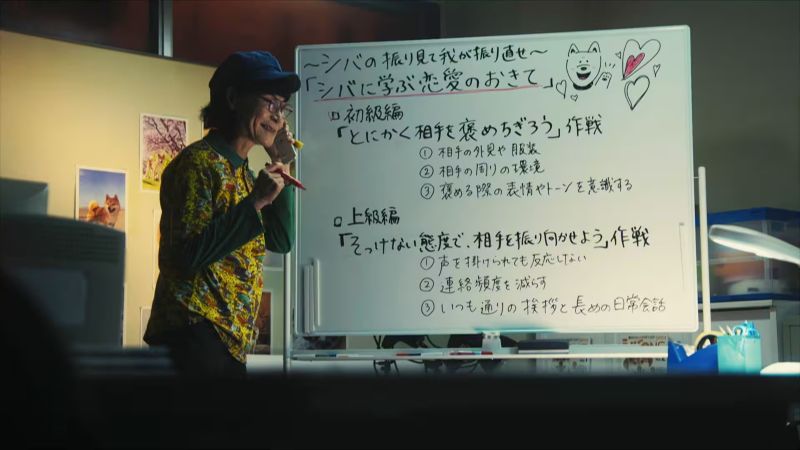 ～シバの振り見て我が振り直せ～
「シバに学ぶ恋愛のおきて」
□ 初級編
「とにかく相手を褒めちぎろう」作戦
① 相手の外見や服装
② 相手の周りの環境
③ 褒める際の表情やトーンを意識する
□ 上級編
「そっけない態度で、相手を振り向かせよう」作戦
① 声を掛けられても反応しない
② 連絡頻度を減らす
③ いつも通りの挨拶と長めの日常会話